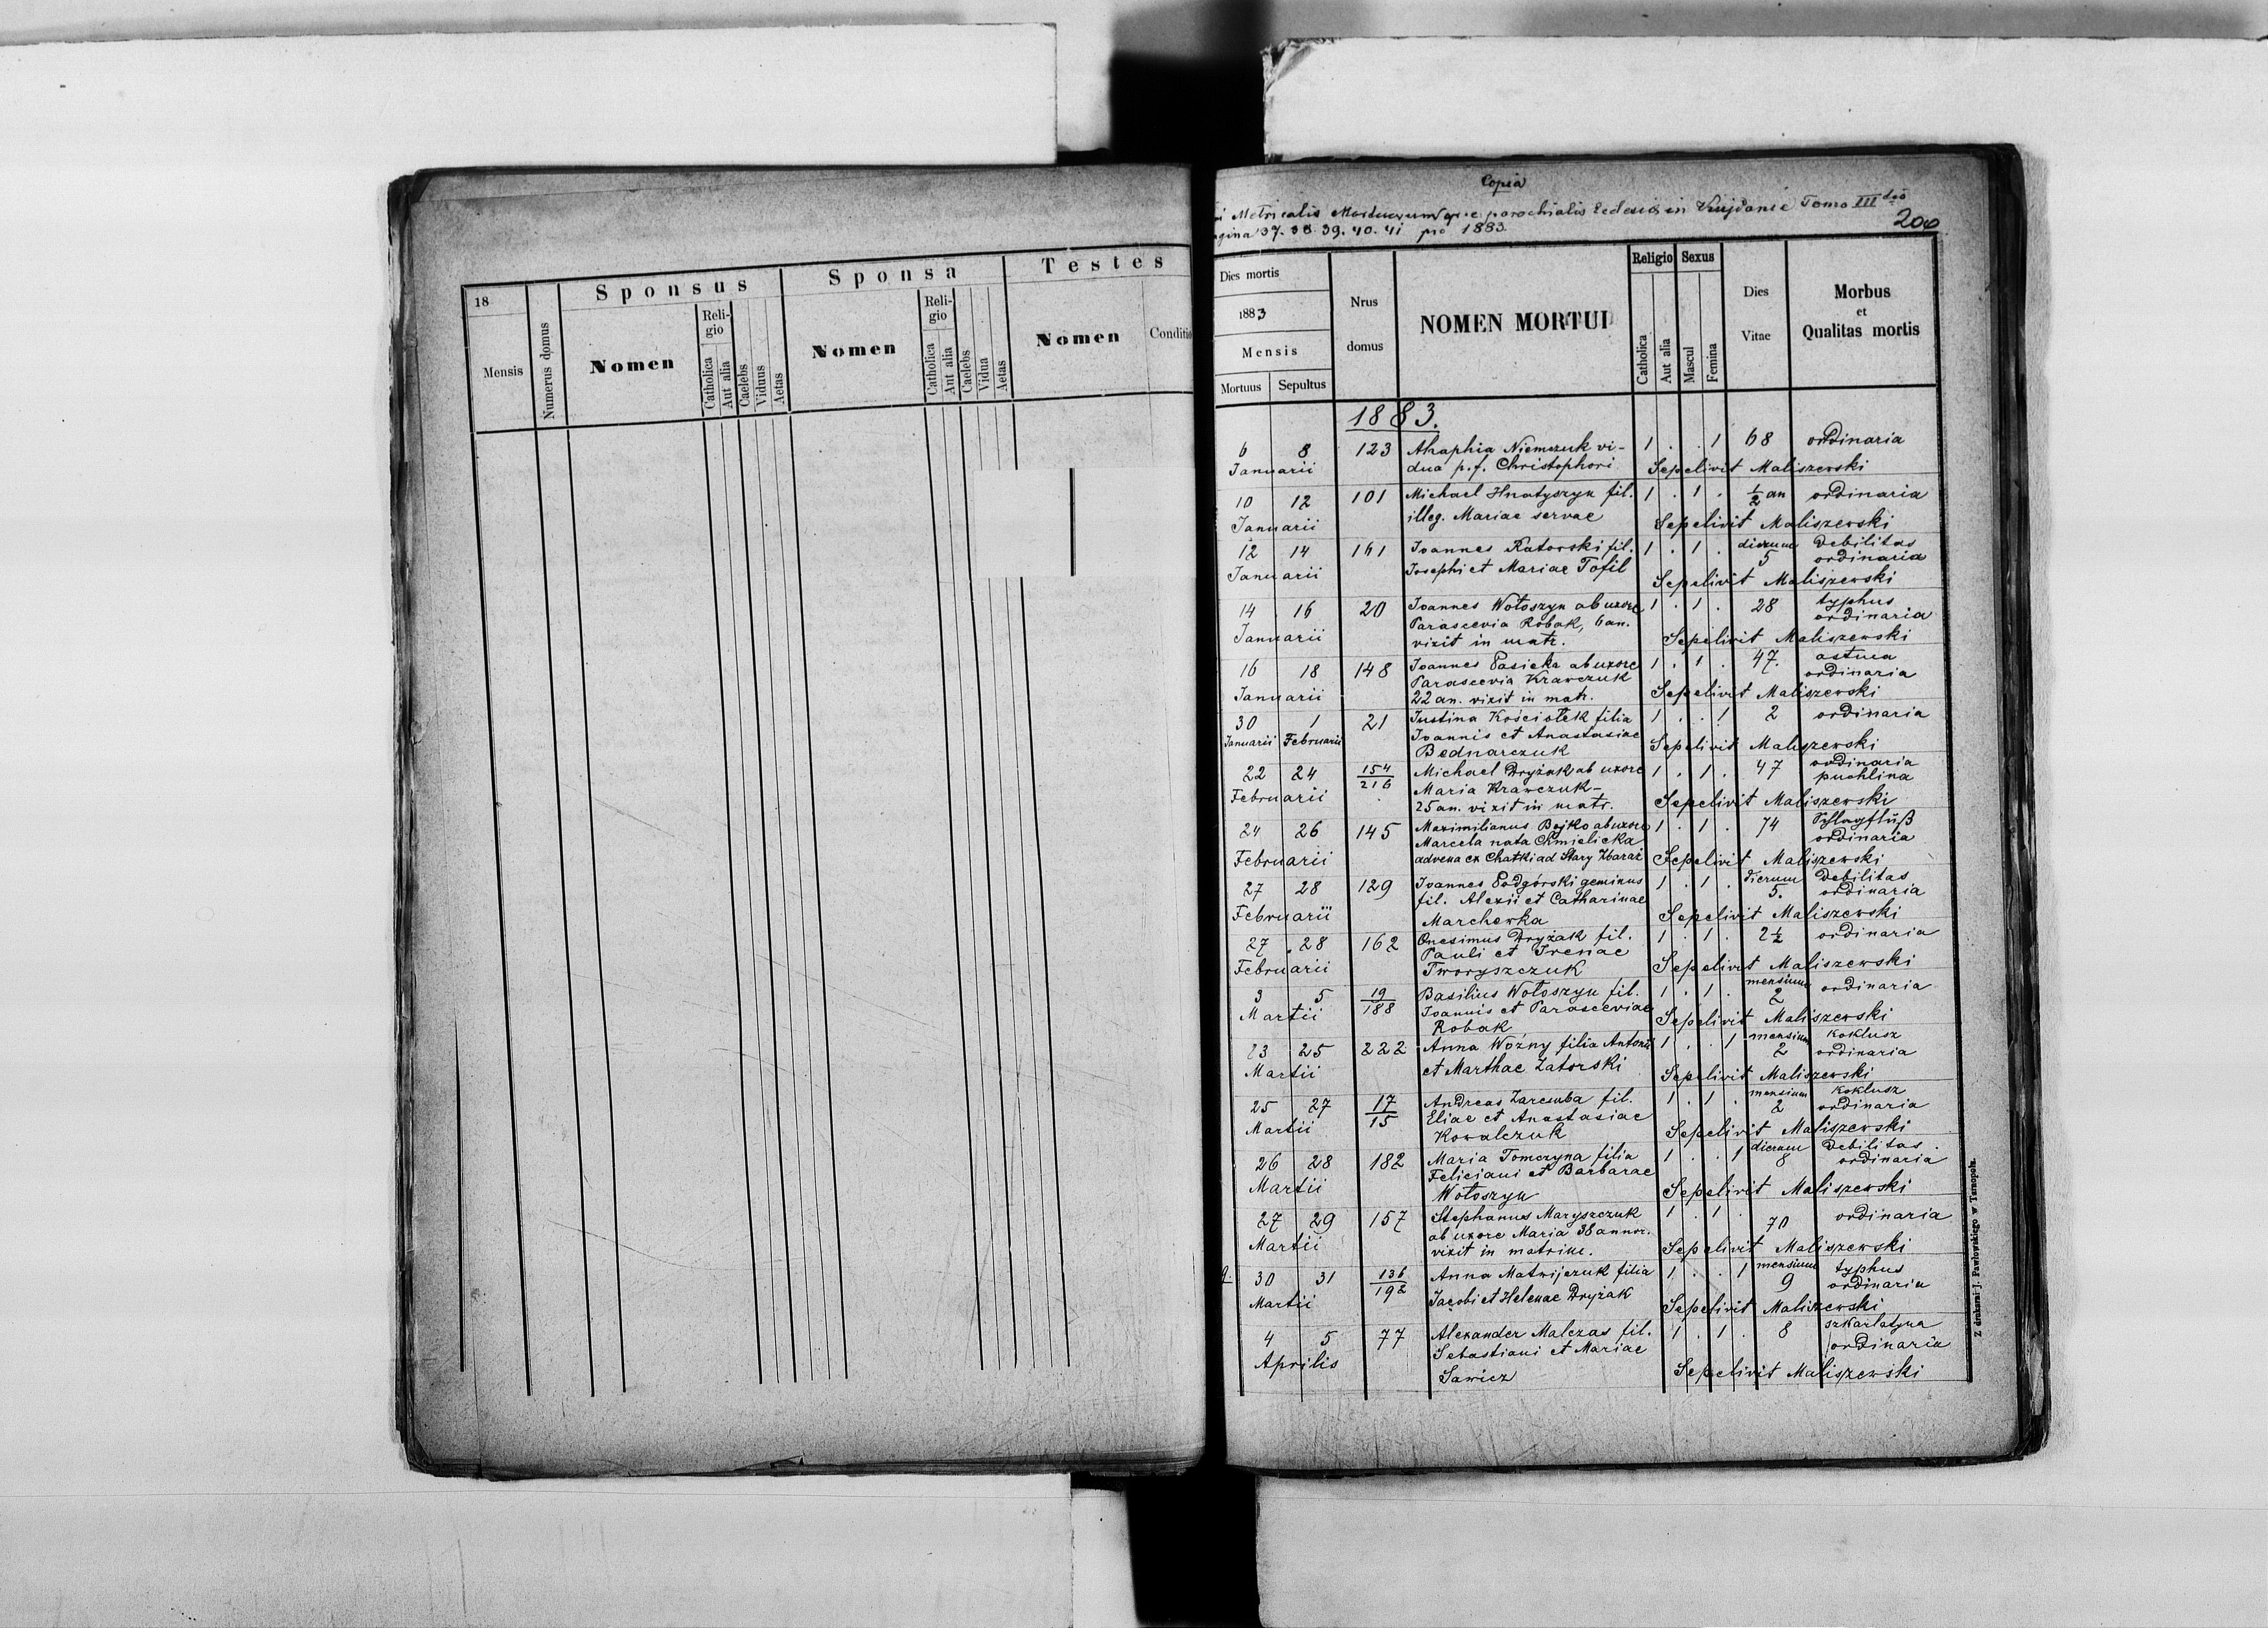 18
Mensis
Numerus domus
Sponsus
Nomen
Reli-
gio
Catholica
Aut alia
Caelebs
Viduus
Aetas
Sponsa
Nomen
Reli-
gio
Catholica
Aut alia
Caelebs
Vidua
Aetas
Testes
Nomen
Conditio
Copia
Metricalis Mortuorum parochialis Ecclesiae in Tomo III
pagina 37. 38. 39. 40. 41 pro 1883
200
Dies mortis
1883
Mensis
Mortuus Sepultus
Nrus
domus
NOMEN MORTUI
Religio
Catholica
Aut alia
Sexus
Mascul
Femina
Dies
Vitae
Morbus
et
Qualitas mortis
1883.
6 8 123 Ahaphia Niemczuk vi- 1 . . 1 68 ordinaria
Januarii dua p. f. Christophori Sepelivit Maliszewski
10 12 101 Michael Hnatyszyn fil. 1 . 1 . 1/2 an ordinaria
Januarii illeg. Mariae servae Sepelivit Maliszewski
12 14 161 Joannes Ratorski fil. 1 . 1 . dierum 5 Debilitas
ordinaria
Januarii Josephi et Mariae Tofil Sepelivit Maliszewski
14 16 20 Joannes Wołoszyn ab uxore 1 . 1 . 28 typhus
Parascevia Robak, 6 an. ordinaria
Januarii vixit in matr. Sepelivit Maliszewski
16 18 148 Joannes Pasieka ab uxore 1 . 1 . 47. astma
Parascevia Krawczuk ordinaria
Januarii 22 an. vixit in matr. Sepelivit Maliszewski
30 1 21 Justina Kościołek filia 1 . . 1 2 ordinaria
Januarii Februarii Joannis et Anastasiae
Bednarczuk Sepelivit Maliszewski
22 24 154/216 Michael Dryżak ab uxore 1 . 1 . 47 ordinaria
Februarii Maria Krawczuk- puchlina
25 an. vixit in matr. Sepelivit Maliszewski
24 26 145 Maximilianus Bojko ab uxore 1 . 1 . 74 Schlagflüß
Marcela nata Chmielicka ordinaria
Februarii advena ex Chatki ad Stary Zbaraż Sepelivit Maliszewski
27 28 129 Joannes Podgórski geminus 1 . 1 . dierum 5. Debilitas
fil. Alexii et Catharinae ordinaria
Februarii Marchewka Sepelivit Maliszewski
27 28 162 Onesimus Dryżak fil. 1 . 1 . 2 1/2 ordinaria
Pauli et Irenae
Februarii Tworyszczuk Sepelivit Maliszewski
3 5 19/188 Basilius Wołoszyn fil. 1 . 1 . mensium 2 ordinaria
Martii Joannis et Parasceviae
Robak Sepelivit Maliszewski
23 25 222 Anna Woźny filia Antonii 1 . . 1 mensium 2 koklusz
ordinaria
Martii et Marthae Zatorski Sepelivit Maliszewski
25 27 17/15 Andreas Zaremba fil. 1 . 1 . mensium 2 koklusz
Eliae et Anastasiae ordinaria
Martii Kowalczuk Sepelivit Maliszewski
26 28 182 Maria Tomczyna filia 1 . . 1 dierum 8 Debilitas
Feliciani et Barbarae ordinaria
Martii Wołoszyn Sepelivit Maliszewski
27 29 157 Stephanus Maryszczuk 1 . 1 . 70 ordinaria
ab uxore Maria 38 annor.
Martii vixit in matrim. Sepelivit Maliszewski
30 31 136/192 Anna Matwijczuk filia 1 . . 1 mensium 9 typhus
ordinaria
Martii Jacobi et Helenae Dryżak Sepelivit Maliszewski
4 5 77 Alexander Malczas fil. 1 . 1 . 8 szkarlatyna
Aprilis Sebastiani et Mariae ordinaria
Sawicz Sepelivit Maliszewski
Z drukarni J. Pawłowskiego w Tarnopolu.